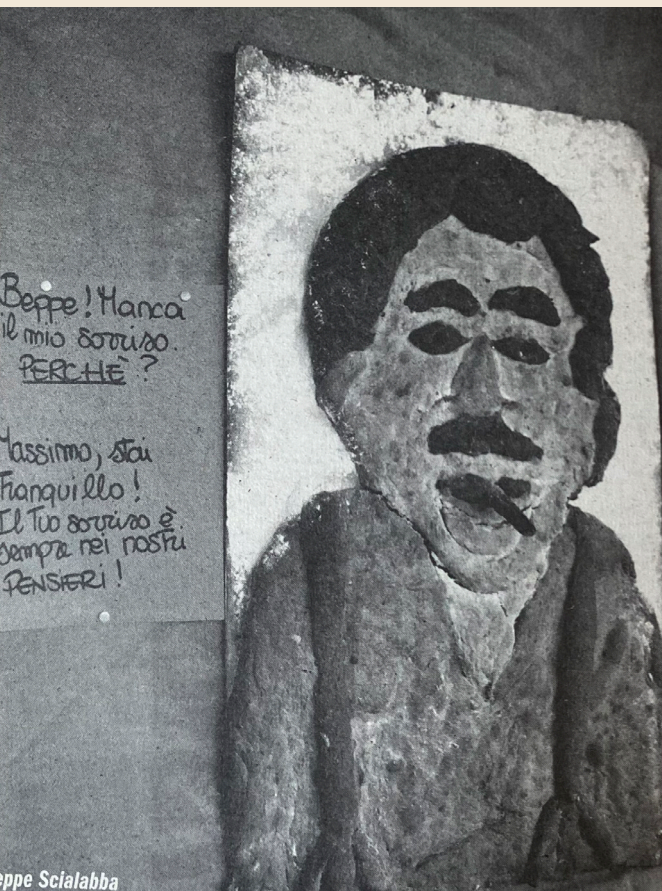 Beppe! Manca
il mio sorriso.
PERCHÈ?
Massimo, stai
Tranquillo!
Il Tuo sorriso è
sempre nei nostri
PENSIERI!
eppe Scialabba